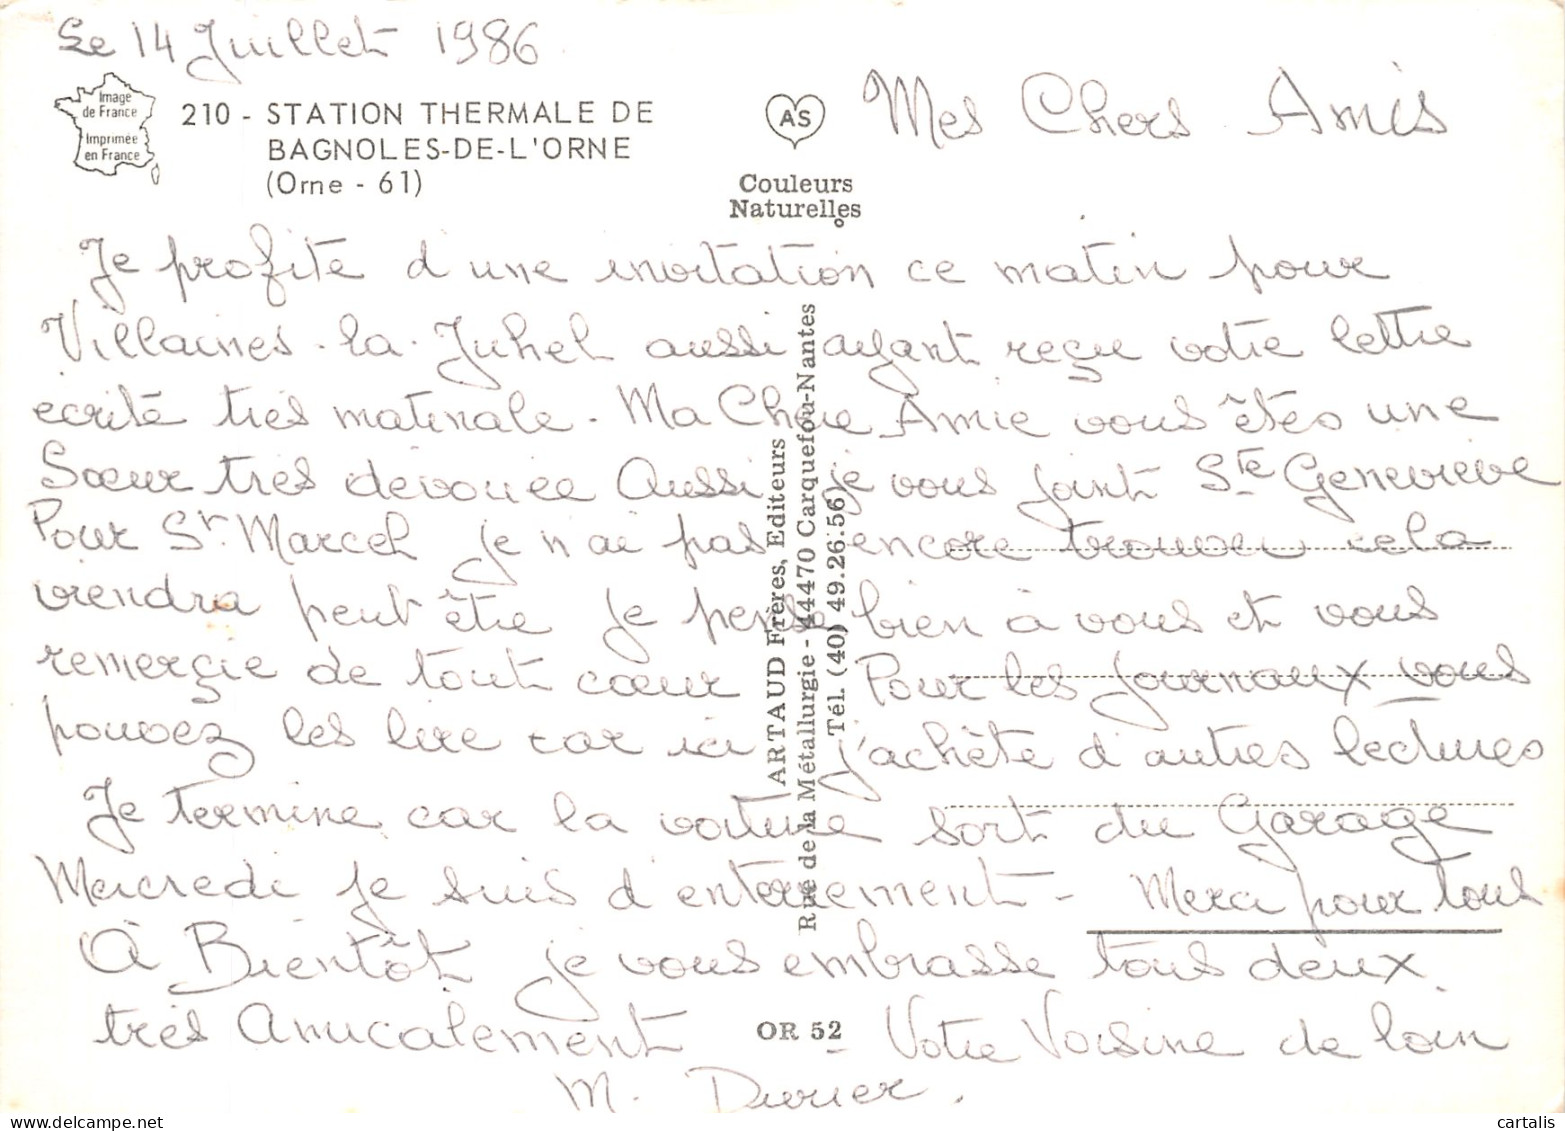 Le 14 Juillet 1986
Image
de France
Imprimée
en France
210 - STATION THERMALE DE
BAGNOLES-DE-L'ORNE
(Orne - 61)
AS
Couleurs
Naturelles
Mes Chers Amis
Je profite d une invitation ce matin pour
Villaines-la-Juhel aussi ayant reçu votre lettre
ecrite très matinale - Ma Chere Amie vous êtes une
Sœur très dévouée Aussi je vous joint Ste Genevieve
Pour St Marcel je n ai pas encore trouver cela
viendra peut être je pense bien à vous et vous
remerçie de tout cœur Pour les journaux vous
pouvez les lire car ici j'achète d'autres lectures
Je termine car la voiture sort du Garage
Mercredi je suis d'enterrement - Merci pour tous
A Bientôt je vous embrasse tous deux
très Amicalement - Votre Voisine de loin
M.
ARTAUD Frères, Editeurs
Rue de la Métallurgie - 44470 Carquefou-Nantes
Tél. (40) 49.26.56
OR 52
cartalis
delcampe.net